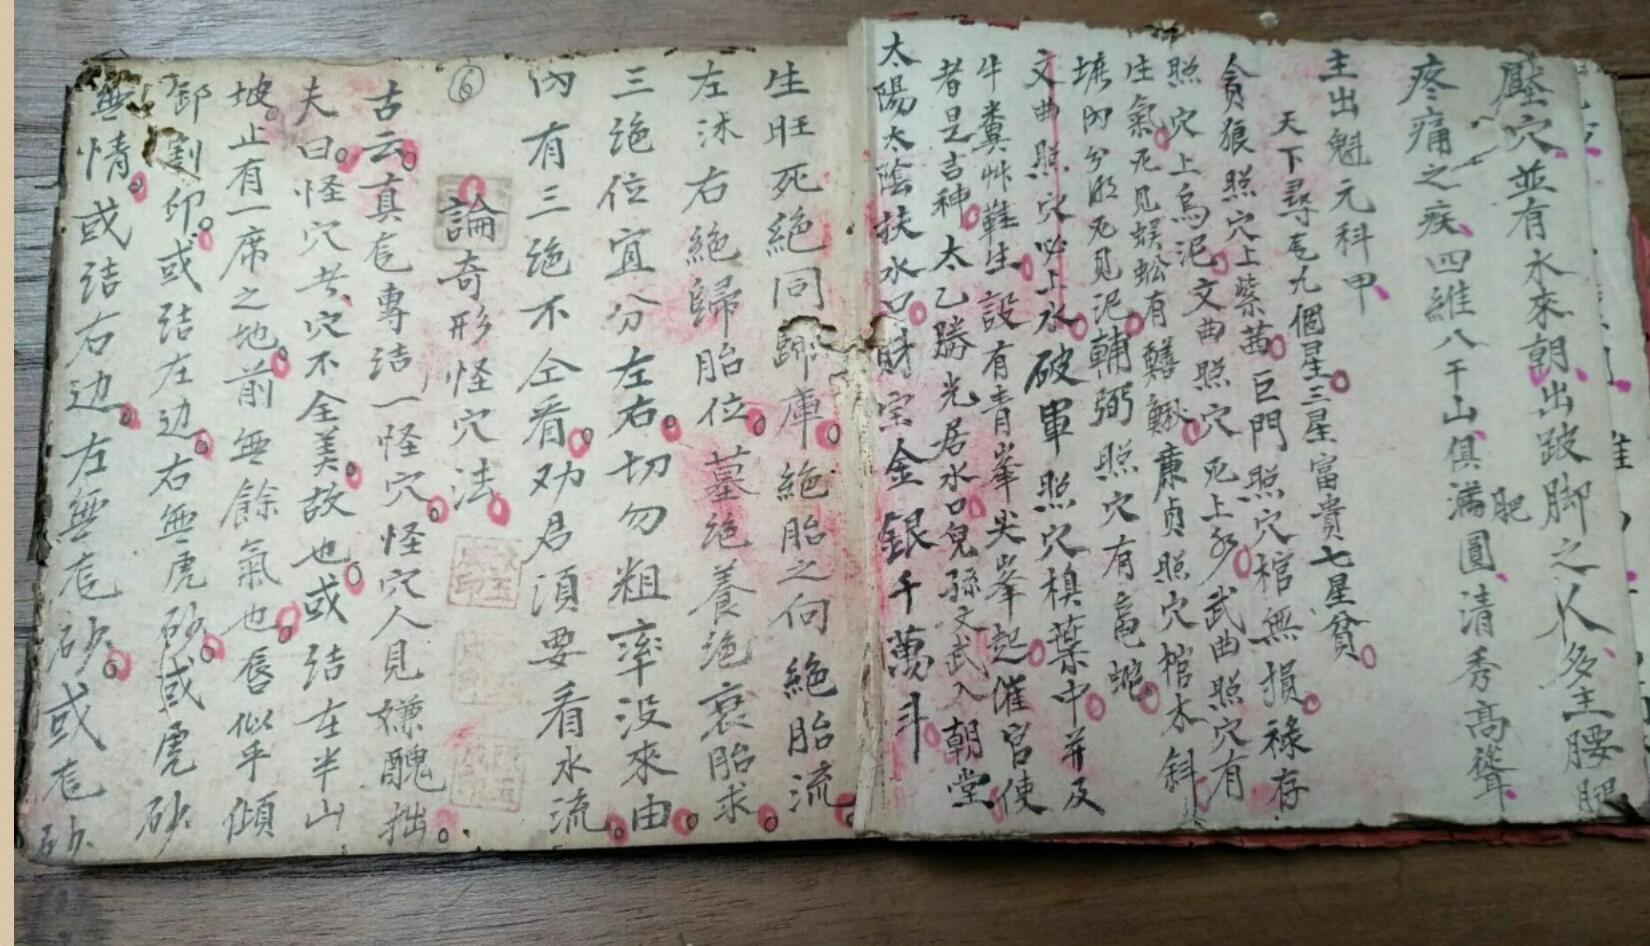 壓穴並有水來朝出跛脚之人多主腰腿
疼痛之疾四維八干山俱滿肥圓清秀高聳
主出魁元科甲
天下尋龍九個星三星富貴七星貧
貪狼照穴上紫茜巨門照穴棺無損祿存
照穴上烏泥文曲照穴死上水武曲照穴有
生氣死見蜈蚣有鱔鰍廉貞照穴棺木斜
塘內分明死見泥輔弼照穴有黿蛇
文曲照穴必上水破軍照穴槙葉中井及
牛糞艸鞋生設有青峯尖峯起催官使
者是吉神太乙勝光居水口兒孫文武入朝堂
太陽太陰扶水口財宝金銀千萬斗
生旺死絕同歸庫絕胎之向絕胎流
左沐右絕歸胎位墓絕養絕衰胎求
三绝位宜分左右切勿粗率没來由
內有三绝不仝看劝君須要看水流
⑥
論奇形怪穴法
古云真龙專结一怪穴怪穴人見嫌醜拙
夫曰怪穴者穴不全美故也或结在半山
坡止有一席之地前無餘氣也唇似乎傾
卸割卯或结左边右無虎砂或虎砂
無情或结右边左無龙砂或龙砂